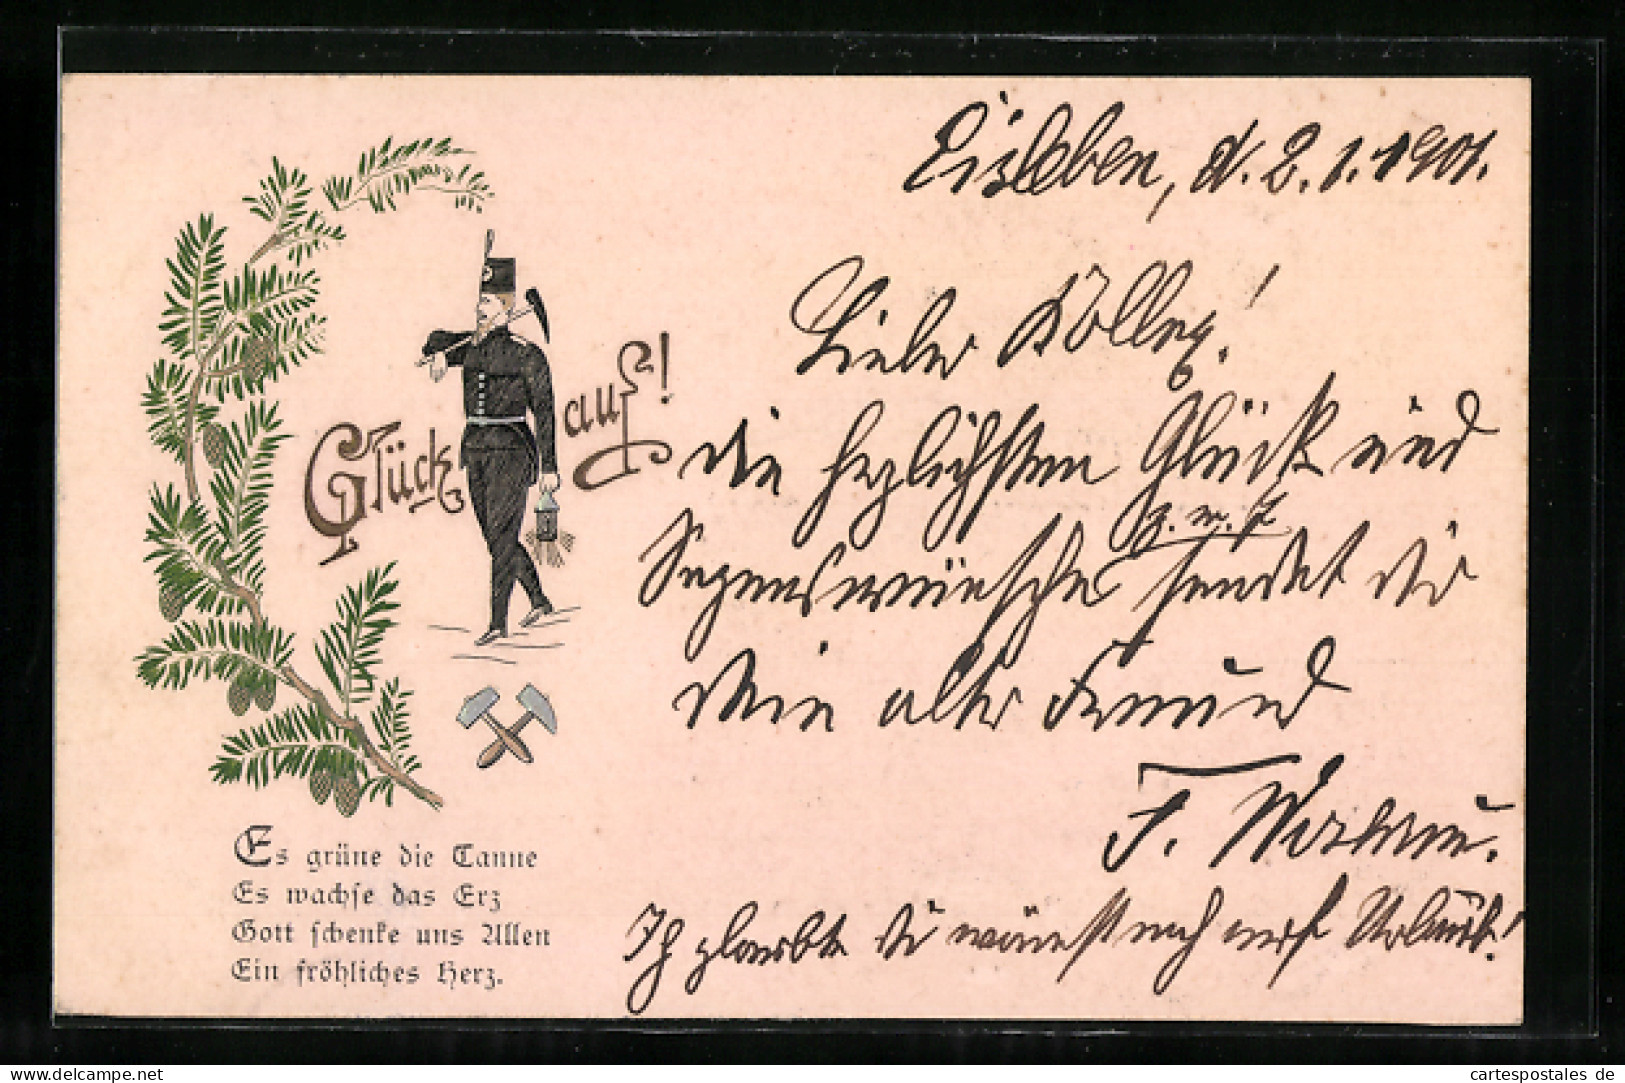 Eisleben, d. 2.1.1901.
Lieber Kolleg!
Glück auf!
die herzlichsten Glück und
z. n. J.
Segenswünsche sendet dir
Dein alter Freund
F.
Ich glaubte du wärest noch auf Urlaub!
Es grüne die Tanne
Es wachse das Erz
Gott schenke uns Allen
Ein fröhliches Herz.
www.delcampe.net
cartespostales de